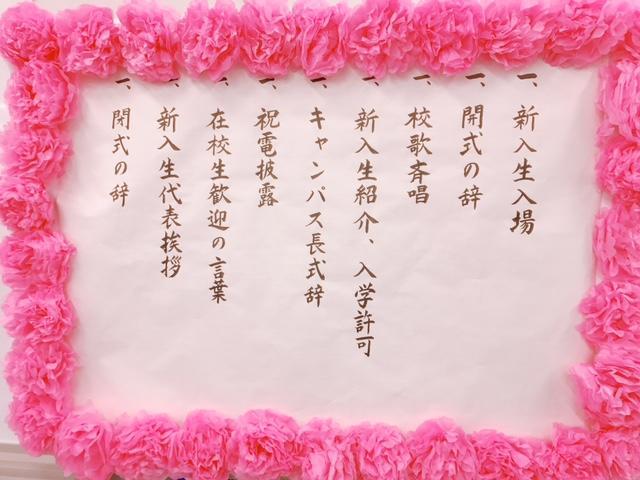 一、新入生入場
一、開式の辞
一、校歌斉唱
一、新入生紹介、入学許可
一、キャンパス長式辞
一、祝電披露
一、在校生歓迎の言葉
一、新入生代表挨拶
一、閉式の辞